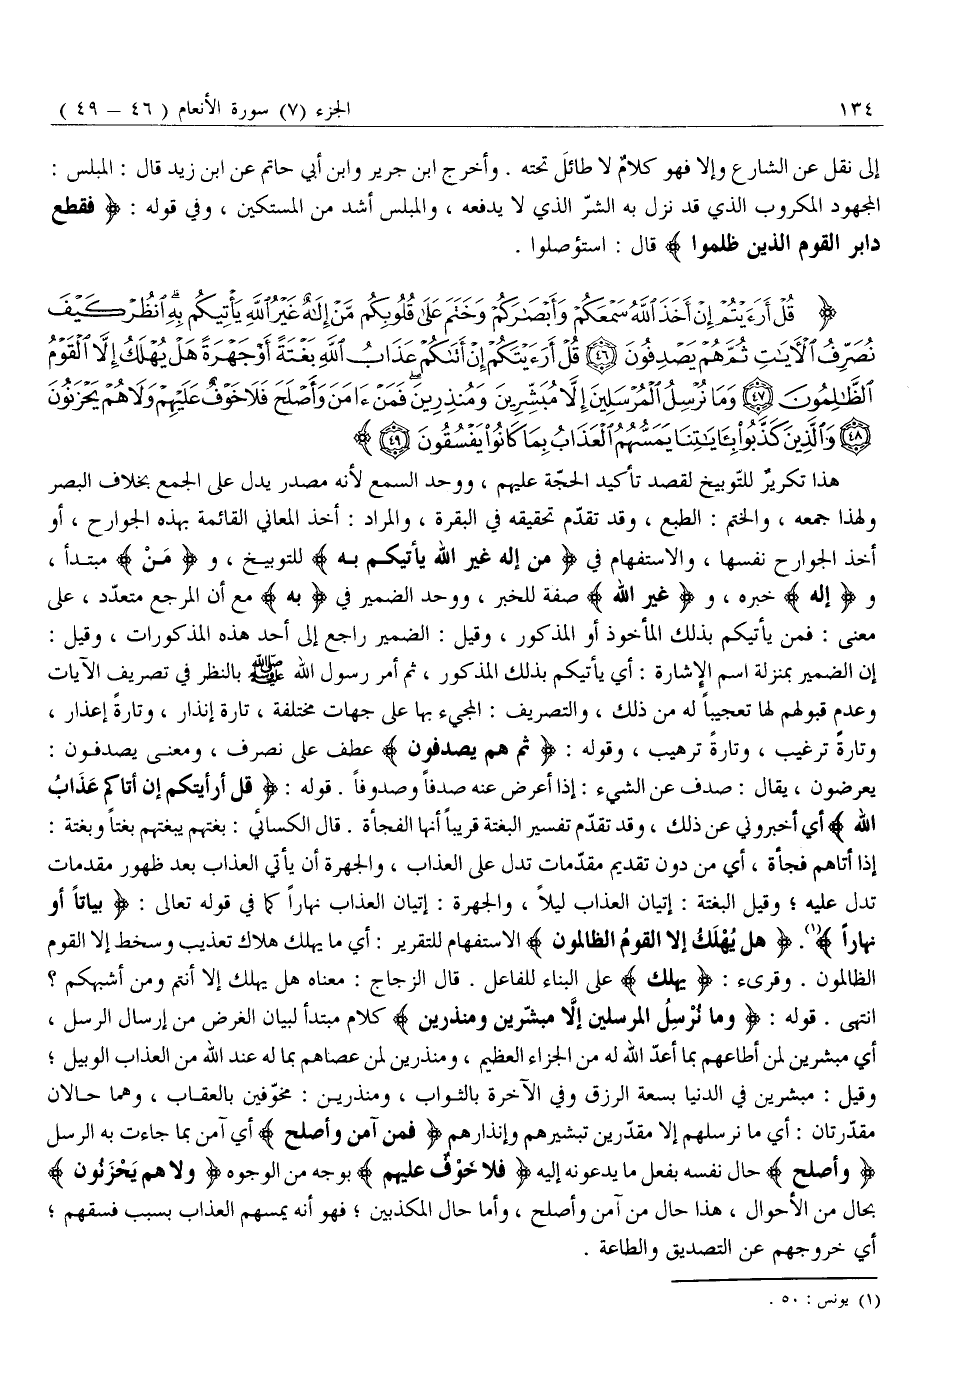 ١٣٤ الجزء (٧) سورة الأنعام ( ٤٦ – ٤٩ )
إلى نقل عن الشارع وإلا فهو كلامٌ لا طائلَ تحته . وأخرج ابن جرير وابن أبي حاتم عن ابن زيد قال : المبلس :
المجهود المكروب الذي قد نزل به الشرّ الذي لا يدفعه ، والمبلس أشد من المستكين ، وفي قوله : ﴿ فقطع
دابر القوم الذين ظلموا ﴾ قال : استؤصلوا .
﴿ قُلْ أَرَءَيْتُمْ إِنْ أَخَذَ ٱللَّهُ سَمْعَكُمْ وَأَبْصَٰرَكُمْ وَخَتَمَ عَلَىٰ قُلُوبِكُم مَّنْ إِلَٰهٌ غَيْرُ ٱللَّهِ يَأْتِيكُم بِهِ ۗ ٱنظُرْ كَيْفَ
نُصَرِّفُ ٱلْءَايَٰتِ ثُمَّ هُمْ يَصْدِفُونَ ٤٦ قُلْ أَرَءَيْتَكُمْ إِنْ أَتَىٰكُمْ عَذَابُ ٱللَّهِ بَغْتَةً أَوْ جَهْرَةً هَلْ يُهْلَكُ إِلَّا ٱلْقَوْمُ
ٱلظَّٰلِمُونَ ٤٧ وَمَا نُرْسِلُ ٱلْمُرْسَلِينَ إِلَّا مُبَشِّرِينَ وَمُنذِرِينَ ۖ فَمَنْ ءَامَنَ وَأَصْلَحَ فَلَا خَوْفٌ عَلَيْهِمْ وَلَا هُمْ يَحْزَنُونَ
٤٨ وَٱلَّذِينَ كَذَّبُوا۟ بِـَٔايَٰتِنَا يَمَسُّهُمُ ٱلْعَذَابُ بِمَا كَانُوا۟ يَفْسُقُونَ ٤٩ ﴾
هذا تكريرٌ للتّوبيخ لقصد تأكيد الحجّة عليهم ، ووحد السمع لأنه مصدر يدل على الجمع بخلاف البصر
ولهذا جمعه ، والختم : الطبع ، وقد تقدّم تحقيقه في البقرة ، والمراد : أخذ المعاني القائمة بهذه الجوارح ، أو
أخذ الجوارح نفسها ، والاستفهام في ﴿ من إله غير الله يأتيكم به ﴾ للتوبيخ ، و ﴿ مَنْ ﴾ مبتدأ ،
و ﴿ إله ﴾ خبره ، و ﴿ غير الله ﴾ صفة للخبر ، ووحد الضمير في ﴿ به ﴾ مع أن المرجع متعدّد ، على
معنى : فمن يأتيكم بذلك المأخوذ أو المذكور ، وقيل : الضمير راجع إلى أحد هذه المذكورات ، وقيل :
إن الضمير بمنزلة اسم الإشارة : أي يأتيكم بذلك المذكور ، ثم أمر رسول الله ﷺ بالنظر في تصريف الآيات
وعدم قبولهم لها تعجيباً له من ذلك ، والتصريف : المجيء بها على جهات مختلفة ، تارة إنذار ، وتارةً إعذار ،
وتارةً ترغيب ، وتارةً ترهيب ، وقوله : ﴿ ثم هم يصدفون ﴾ عطف على نصرف ، ومعنى يصدفون :
يعرضون ، يقال : صدف عن الشيء : إذا أعرض عنه صدفاً وصدوفاً . قوله : ﴿ قل أرأيتكم إن أتاكم عَذَابُ
الله ﴾ أي أخبروني عن ذلك ، وقد تقدّم تفسير البغتة قريباً أنها الفجأة . قال الكسائي : بغتهم يبغتهم بغتاً وبغتة :
إذا أتاهم فجأة ، أي من دون تقديم مقدّمات تدل على العذاب ، والجهرة أن يأتي العذاب بعد ظهور مقدمات
تدل عليه ؛ وقيل البغتة : إتيان العذاب ليلاً ، والجهرة : إتيان العذاب نهاراً كما في قوله تعالى : ﴿ بياتاً أو
نهاراً ﴾(١). ﴿ هل يُهْلَكُ إلا القومُ الظالمون ﴾ الاستفهام للتقرير : أي ما يهلك هلاك تعذيب وسخط إلا القوم
الظالمون . وقرىء : ﴿ يهلك ﴾ على البناء للفاعل . قال الزجاج : معناه هل يهلك إلا أنتم ومن أشبهكم ؟
انتهى . قوله : ﴿ وما نُرْسِلُ المرسلين إلَّا مبشّرين ومنذرين ﴾ كلام مبتدأ لبيان الغرض من إرسال الرسل ،
أي مبشرين لمن أطاعهم بما أعدّ الله له من الجزاء العظيم ، ومنذرين لمن عصاهم بما له عند الله من العذاب الوبيل ؛
وقيل : مبشرين في الدنيا بسعة الرزق وفي الآخرة بالثواب ، ومنذرين : مخوّفين بالعقاب ، وهما حالان
مقدّرتان : أي ما نرسلهم إلا مقدّرين تبشيرهم وإنذارهم ﴿ فمن آمن وأصلح ﴾ أي آمن بما جاءت به الرسل
﴿ وأصلح ﴾ حال نفسه بفعل ما يدعونه إليه ﴿ فلا خَوْفٌ عليهم ﴾ بوجه من الوجوه ﴿ ولا هم يَحْزَنُون ﴾
بحال من الأحوال ، هذا حال من آمن وأصلح ، وأما حال المكذبين ؛ فهو أنه يمسهم العذاب بسبب فسقهم ؛
أي خروجهم عن التصديق والطاعة .
(١) يونس : ٥٠ .